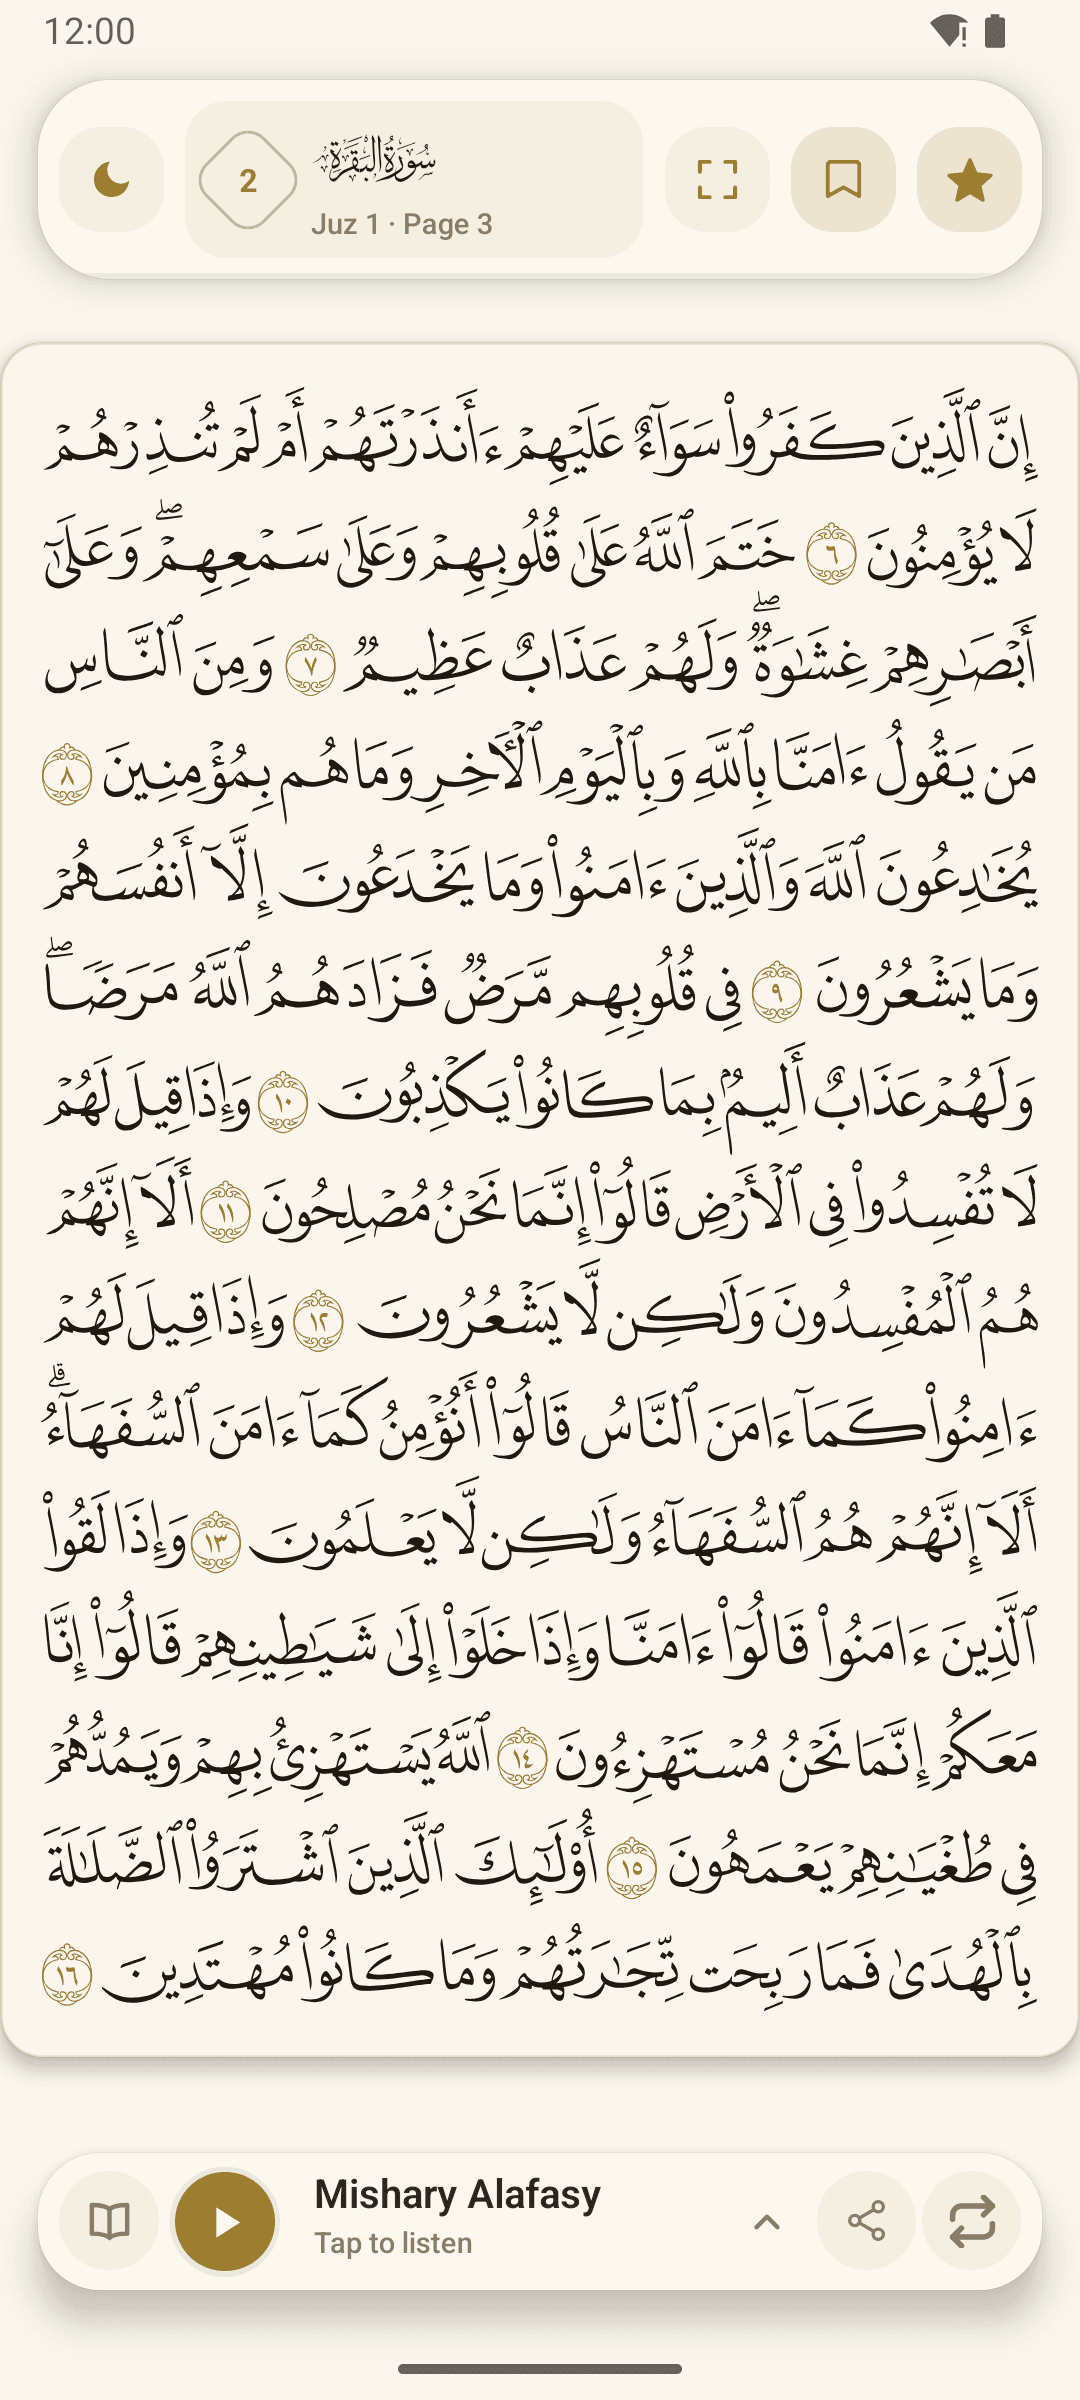 12:00
2
سُورَةُ البَقَرَةِ
Juz 1 · Page 3
إِنَّ ٱلَّذِينَ كَفَرُوا۟ سَوَآءٌ عَلَيْهِمْ ءَأَنذَرْتَهُمْ أَمْ لَمْ تُنذِرْهُمْ
لَا يُؤْمِنُونَ ٦ خَتَمَ ٱللَّهُ عَلَىٰ قُلُوبِهِمْ وَعَلَىٰ سَمْعِهِمْ ۖ وَعَلَىٰٓ
أَبْصَـٰرِهِمْ غِشَـٰوَةٌ ۖ وَلَهُمْ عَذَابٌ عَظِيمٌ ٧ وَمِنَ ٱلنَّاسِ
مَن يَقُولُ ءَامَنَّا بِٱللَّهِ وَبِٱلْيَوْمِ ٱلْـَٔاخِرِ وَمَا هُم بِمُؤْمِنِينَ ٨
يُخَـٰدِعُونَ ٱللَّهَ وَٱلَّذِينَ ءَامَنُوا۟ وَمَا يَخْدَعُونَ إِلَّآ أَنفُسَهُمْ
وَمَا يَشْعُرُونَ ٩ فِى قُلُوبِهِم مَّرَضٌ فَزَادَهُمُ ٱللَّهُ مَرَضًا ۖ
وَلَهُمْ عَذَابٌ أَلِيمٌۢ بِمَا كَانُوا۟ يَكْذِبُونَ ١٠ وَإِذَا قِيلَ لَهُمْ
لَا تُفْسِدُوا۟ فِى ٱلْأَرْضِ قَالُوٓا۟ إِنَّمَا نَحْنُ مُصْلِحُونَ ١١ أَلَآ إِنَّهُمْ
هُمُ ٱلْمُفْسِدُونَ وَلَـٰكِن لَّا يَشْعُرُونَ ١٢ وَإِذَا قِيلَ لَهُمْ
ءَامِنُوا۟ كَمَآ ءَامَنَ ٱلنَّاسُ قَالُوٓا۟ أَنُؤْمِنُ كَمَآ ءَامَنَ ٱلسُّفَهَآءُ ۗ
أَلَآ إِنَّهُمْ هُمُ ٱلسُّفَهَآءُ وَلَـٰكِن لَّا يَعْلَمُونَ ١٣ وَإِذَا لَقُوا۟
ٱلَّذِينَ ءَامَنُوا۟ قَالُوٓا۟ ءَامَنَّا وَإِذَا خَلَوْا۟ إِلَىٰ شَيَـٰطِينِهِمْ قَالُوٓا۟ إِنَّا
مَعَكُمْ إِنَّمَا نَحْنُ مُسْتَهْزِءُونَ ١٤ ٱللَّهُ يَسْتَهْزِئُ بِهِمْ وَيَمُدُّهُمْ
فِى طُغْيَـٰنِهِمْ يَعْمَهُونَ ١٥ أُو۟لَـٰٓئِكَ ٱلَّذِينَ ٱشْتَرَوُا۟ ٱلضَّلَـٰلَةَ
بِٱلْهُدَىٰ فَمَا رَبِحَت تِّجَـٰرَتُهُمْ وَمَا كَانُوا۟ مُهْتَدِينَ ١٦
Mishary Alafasy
Tap to listen